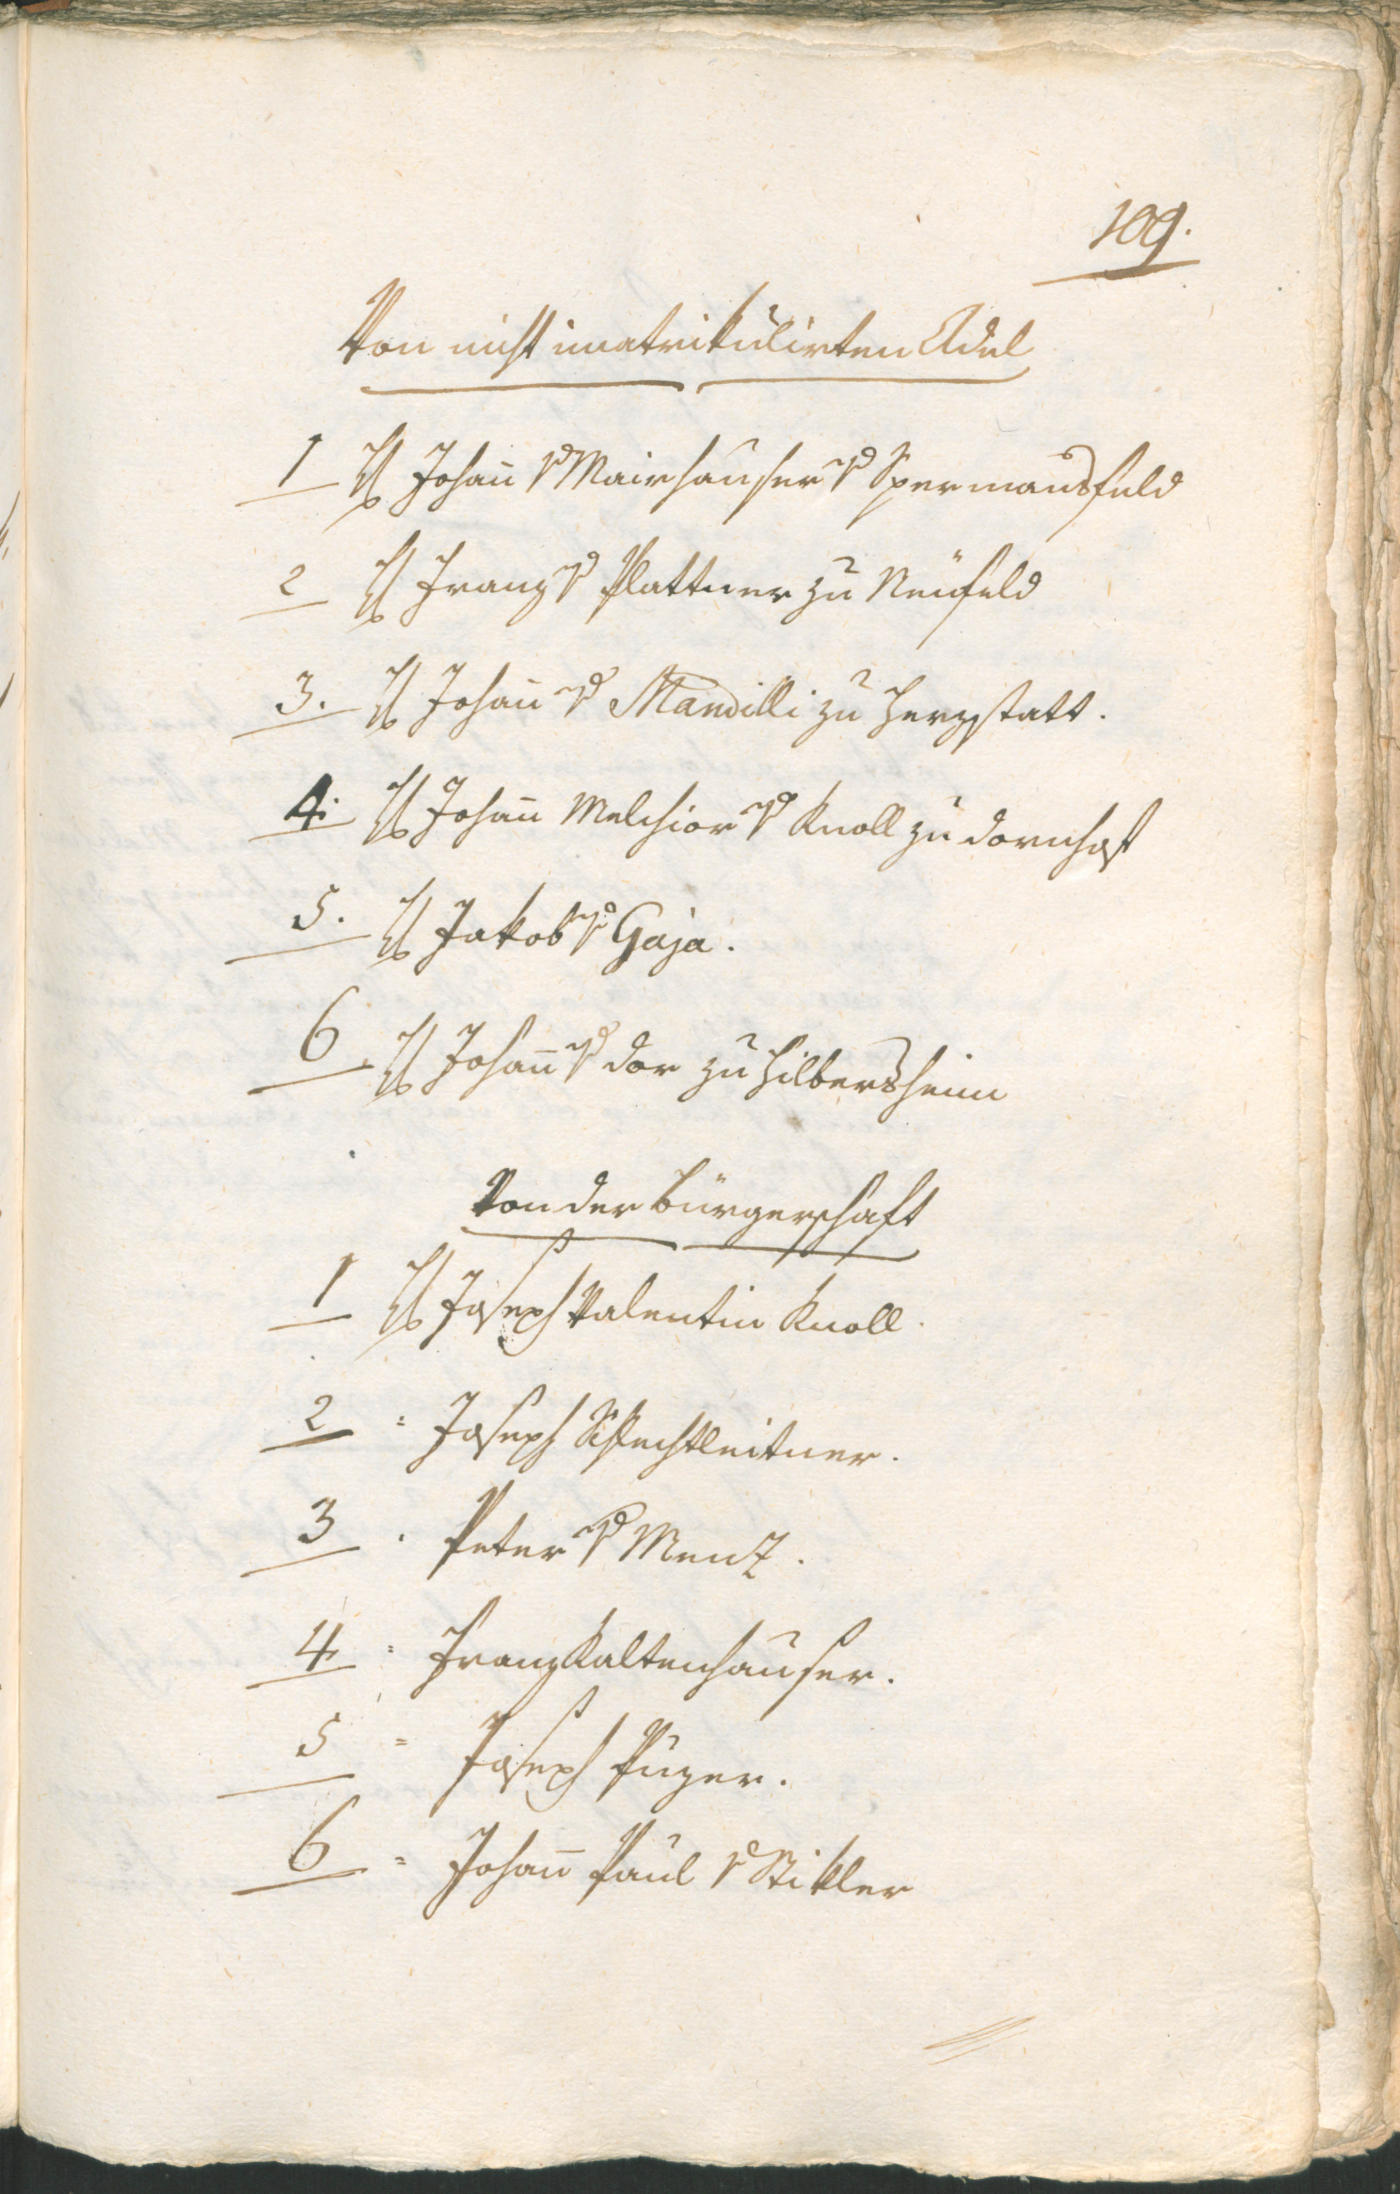 109.
Von nicht imatrikulirten Adel
1 H Johan̄ v Mairhauser v Spermansfeld
2 H Franz v Plattner zu Neufeld
3. H Johan̄ v Mandilli zu Herzstatt.
4. H Johan̄ Melchior v Knoll zu Dornhof
5. H Jakob v Gaja.
6 H Johan̄ v Dor zu Hilbersheim
Von der Bürgerschaft
1 H Joseph Valentin Knoll.
2 = Joseph Schlechtleitner.
3 . Peter v Menz.
4 = Franz Kaltenhauser.
5 = Joseph Puzer.
6 = Johan̄ Paul v Stikler